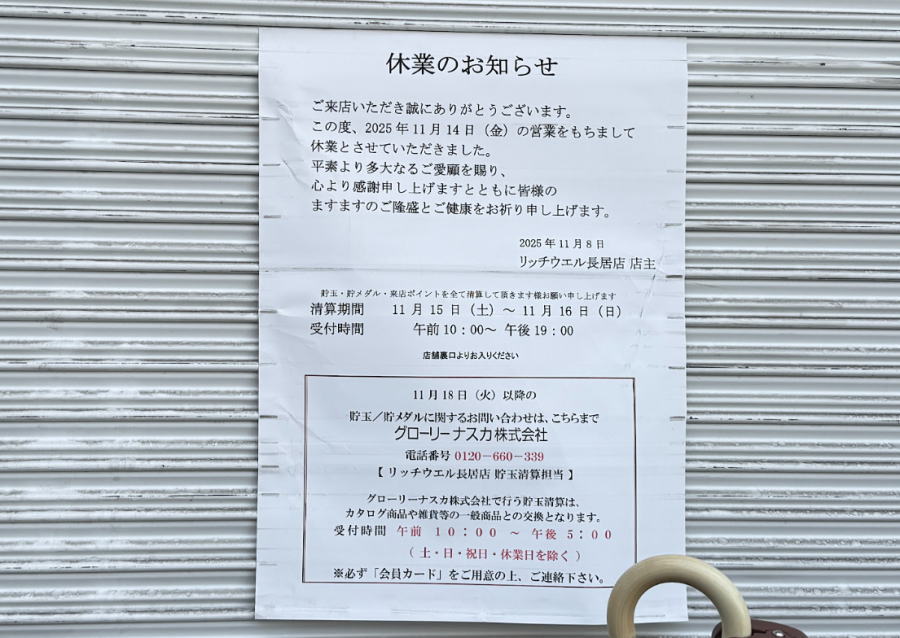 休業のお知らせ
ご来店いただき誠にありがとうございます。
この度、2025年11月14日（金）の営業をもちまして
休業とさせていただきました。
平素より多大なるご愛顧を賜り、
心より感謝申し上げますとともに皆様の
ますますのご隆盛とご健康をお祈り申し上げます。
2025年11月8日
リッチウエル長居店 店主
貯玉・貯メダル・来店ポイントを全て清算して頂きます様お願い申し上げます
清算期間 11月15日（土）～11月16日（日）
受付時間 午前10：00～ 午後19：00
店舗裏口よりお入りください
11月18日（火）以降の
貯玉／貯メダルに関するお問い合わせは、こちらまで
グローリーナスカ株式会社
電話番号 0120－660－339
【 リッチウエル長居店 貯玉清算担当 】
グローリーナスカ株式会社で行う貯玉清算は、
カタログ商品や雑貨等の一般商品との交換となります。
受付時間 午前 10：00 ～ 午後 5：00
（ 土・日・祝日・休業日を除く ）
※必ず「会員カード」をご用意の上、ご連絡下さい。